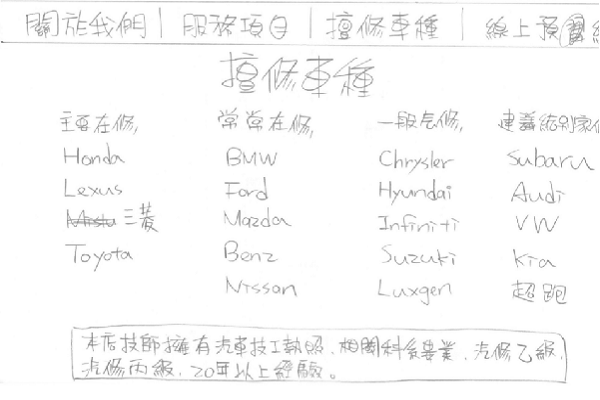 關於我們 | 服務項目 | 擅修車種 | 線上預
擅修車種
主要在修, 常常在修, 一般在修, 建議給別家
Honda BMW Chrysler Subaru
Lexus Ford Hyundai Audi
三菱 Mazda Infiniti VW
Toyota Benz Suzuki Kia
Nissan Luxgen 超跑
本店技師擁有汽車技工執照、相關科系畢業、汽修乙級、
汽修丙級、20年以上經驗。